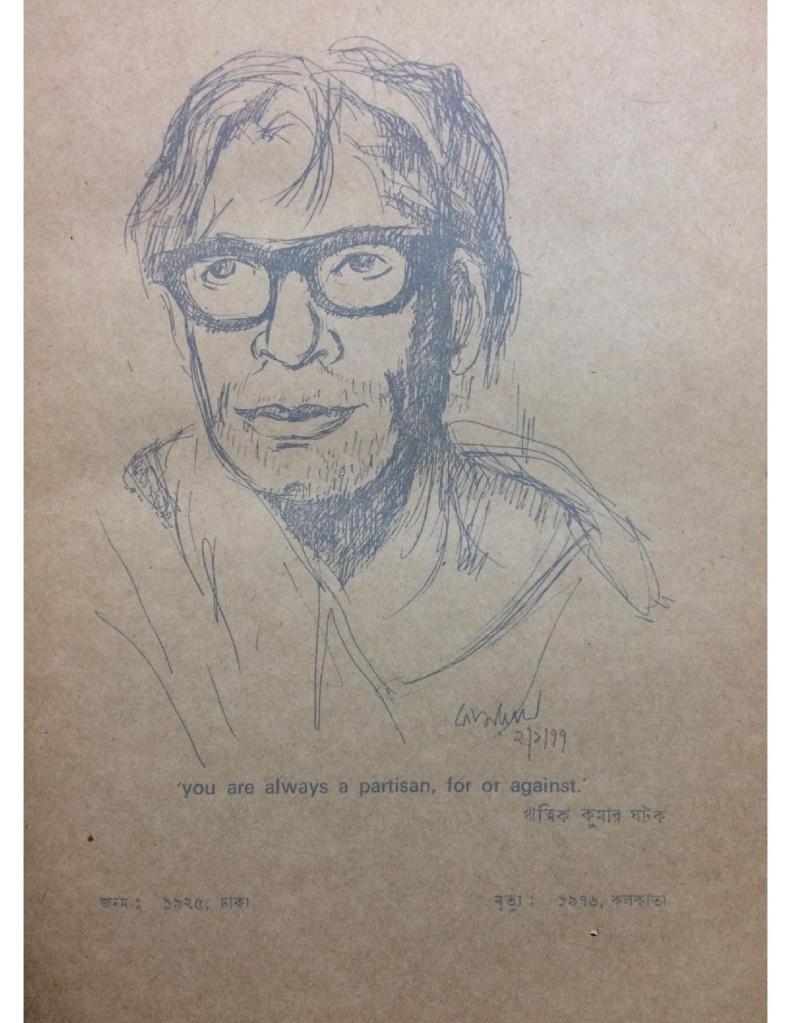 ২/১/৭৭
'you are always a partisan, for or against.'
ঋত্বিক কুমার ঘটক
জন্ম : ১৯২৫, ঢাকা
মৃত্যু : ১৯৭৬, কলকাতা